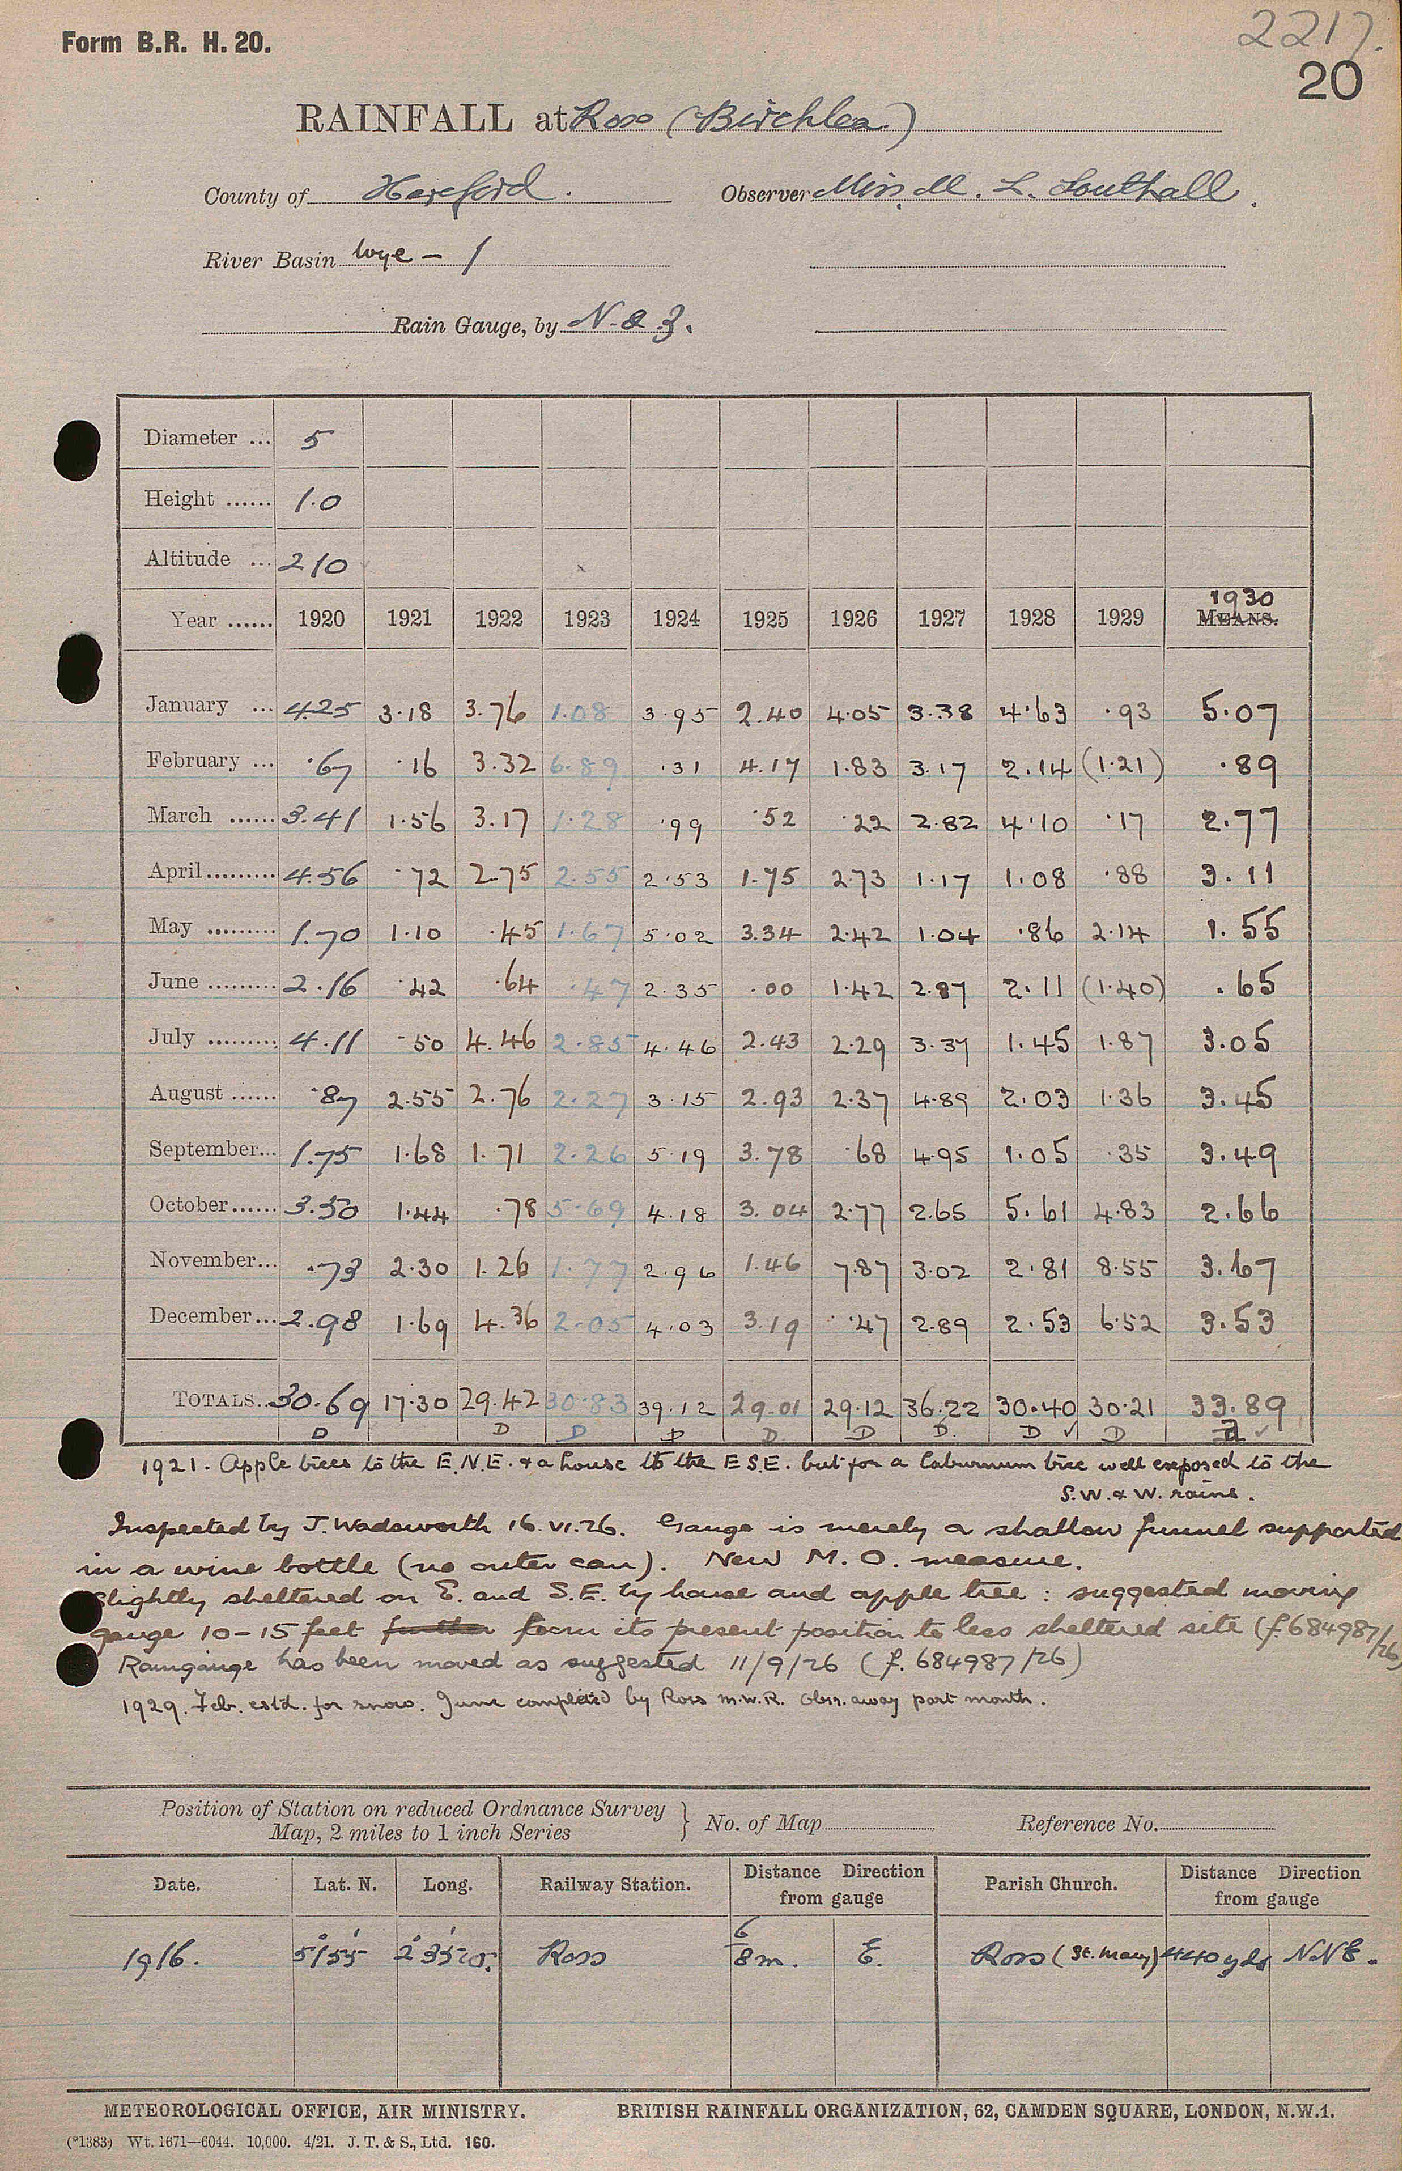 Form B.R. H. 20.
2217.
20
RAINFALL at Ross (Birchlea)
County of Hereford. Observer Miss M. L. Southall.
River Basin Wye - 1
Rain Gauge, by N. & Z.
Diameter ... 5
Height ...... 1.0
Altitude ... 210
Year ...... 1920 1921 1922 1923 1924 1925 1926 1927 1928 1929 1930 MEANS.
January ... 4.25 3.18 3.76 1.08 3.95 2.40 4.05 3.38 4.63 .93 5.07
February ... .67 .16 3.32 6.89 .31 4.17 1.83 3.17 2.14 (1.21) .89
March ...... 3.41 1.56 3.17 1.28 .99 .52 .22 2.82 4.10 .17 2.77
April ......... 4.56 .72 2.75 2.55 2.53 1.75 2.73 1.17 1.08 .88 3.11
May ......... 1.70 1.10 .45 1.67 5.02 3.34 2.42 1.04 .86 2.14 1.55
June ......... 2.16 .42 .64 .47 2.35 .00 1.42 2.87 2.11 (1.40) .65
July ......... 4.11 .50 4.46 2.85 4.46 2.43 2.29 3.37 1.45 1.87 3.05
August ...... .87 2.55 2.76 2.27 3.15 2.93 2.37 4.89 2.03 1.36 3.45
September... 1.75 1.68 1.71 2.26 5.19 3.78 .68 4.95 1.05 .35 3.49
October...... 3.50 1.44 .78 5.69 4.18 3.04 2.77 2.65 5.61 4.83 2.66
November... .73 2.30 1.26 1.77 2.96 1.46 7.87 3.02 2.81 8.55 3.67
December... 2.98 1.69 4.36 2.05 4.03 3.19 .47 2.89 2.53 6.52 3.53
TOTALS.. 30.69 17.30 29.42 30.83 39.12 29.01 29.12 36.22 30.40 30.21 33.89
D D D D D D D D ✓ D ✓
1921. Apple trees to the E.N.E. & a house to the E S.E. but for a laburnum tree well exposed to the
S.W. & W. rains.
Inspected by J. Wadsworth 16.VI.26. Gauge is merely a shallow funnel supported
in a wine bottle (no outer can). New M. O. measure.
Slightly sheltered on E. and S.E. by house and apple tree : suggested moving
gauge 10-15 feet further from its present position to less sheltered site (f. 684987/26)
Raingauge has been moved as suggested 11/9/26 (f. 684987/26)
1929. Feb. estd. for snow. June completed by Ross M.W.R. Obsr. away part month.
Position of Station on reduced Ordnance Survey Map, 2 miles to 1 inch Series } No. of Map Reference No.
Date. Lat. N. Long. Railway Station. Distance Direction from gauge Parish Church. Distance Direction from gauge
1916. 51° 55' 2° 35' Ross 6/8 m. E. Ross (St. Mary) 440 yds N.N.E.
METEOROLOGICAL OFFICE, AIR MINISTRY. BRITISH RAINFALL ORGANIZATION, 62, CAMDEN SQUARE, LONDON, N.W.1.
(*1383) Wt. 1671—6044. 10,000. 4/21. J. T. & S., Ltd. 160.